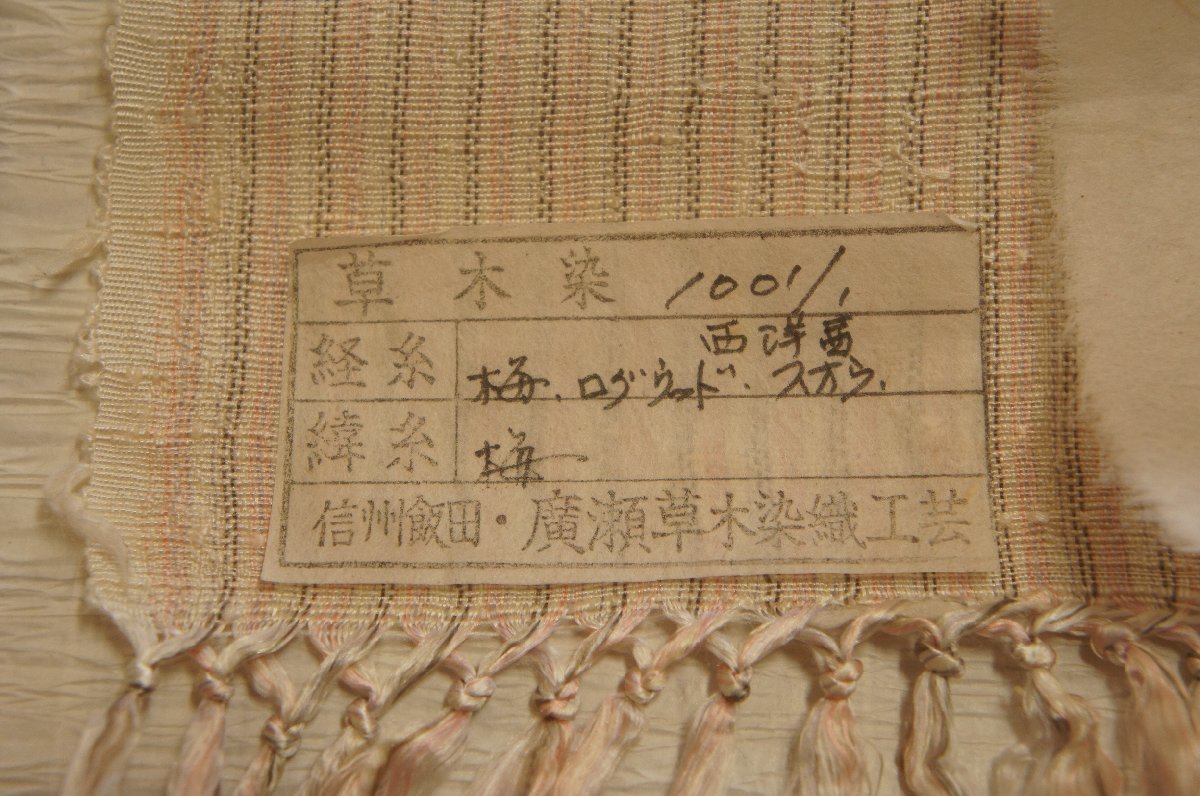 草木染 1001/1
西洋茜
経糸 梅.ログウッド.スオウ.
緯糸 梅
信州飯田・廣瀬草木染織工芸